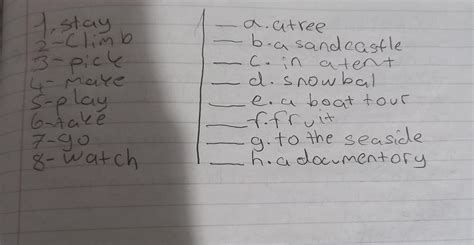 1, stay
2-Climb
3-pick
4-make
5-play
6-take
7-go
8-watch
a. a tree
b. a sandcastle
c. in a tent
d. snowbal
e. a boat tour
f. fruit
g. to the seaside
h. a documentory